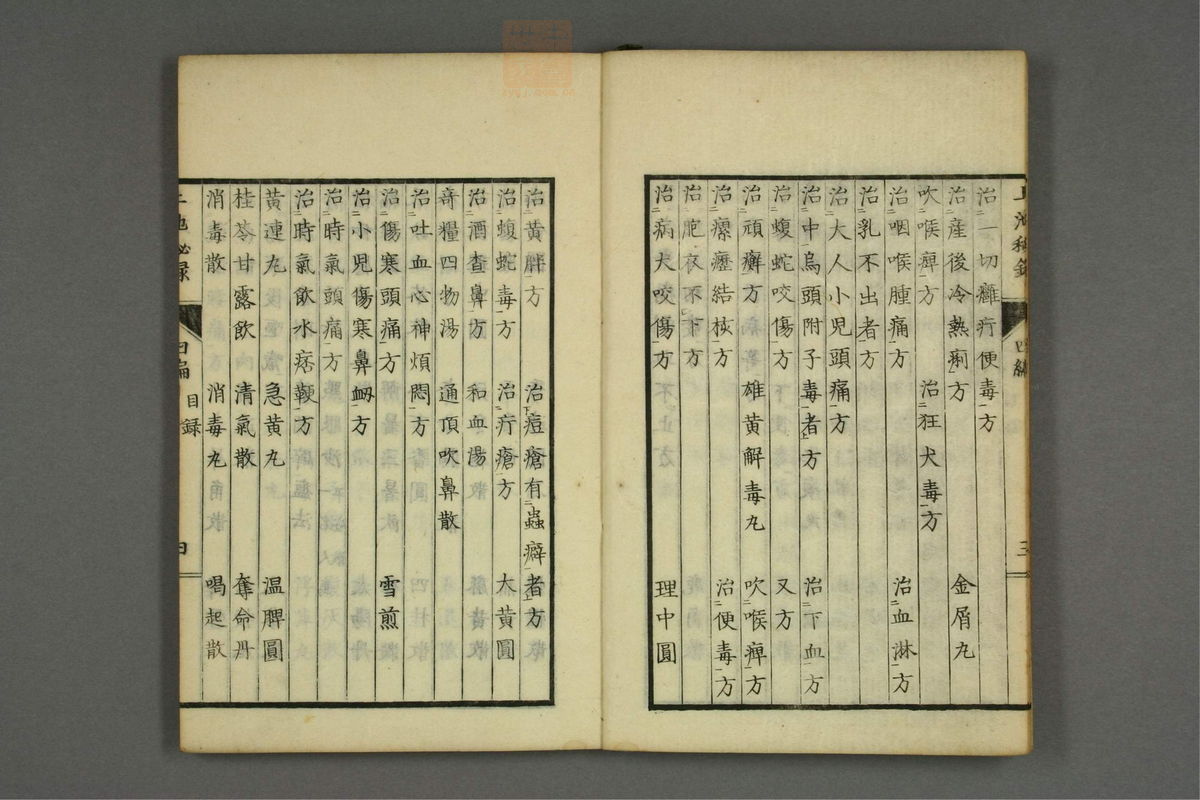 治一切癰疔便毒方
治產後冷熱痢方 金屑丸
吹喉痺方 治狂犬毒方
治咽喉腫痛方 治血淋方
治乳不出者方
治大人小児頭痛方
治中烏頭附子毒者方 治下血方
治蝮蛇咬傷方 又方
治頑癬方 雄黄解毒丸 吹喉痺方
治瘰癧結核方 治便毒方
治胞衣不下方
治病犬咬傷方 理中圓
三
治黄胖方 治痘瘡有蟲癖者方
治蝮蛇毒方 治疔瘡方 大黄圓
治酒査鼻方 和血湯
奇糧四物湯 通頂吹鼻散
治吐血心神煩悶方
治傷寒頭痛方 雪煎
治小児傷寒鼻衂方
治時氣頭痛方
治時氣飲水痞鞕方
黄連丸 急黄丸 温脾圓
桂苓甘露飲 清氣散 奪命丹
消毒散 消毒丸 喝起散
上池秘録 四編 目録 四